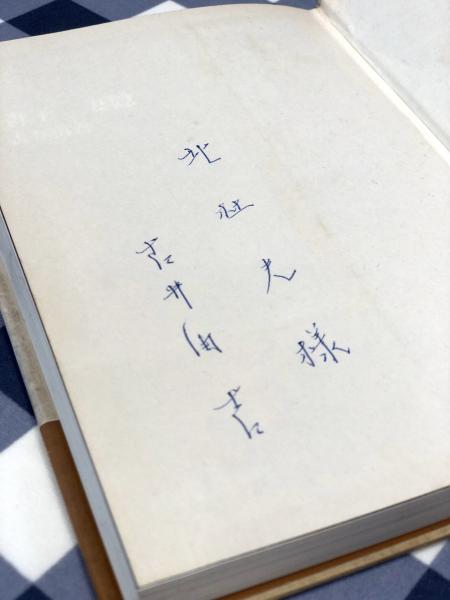 北杜夫様
古井由吉